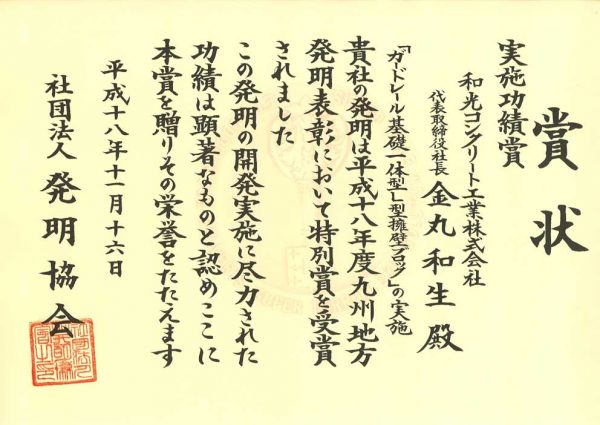 賞状
実施功績賞
和光コンクリート工業株式会社
代表取締役社長 金丸和生殿
「ガードレール基礎一体型L型擁壁ブロック」の実施
貴社の発明は平成十八年度九州地方
発明表彰において特別賞を受賞
されました
この発明の開発実施に尽力された
功績は顕著なものと認めここに
本賞を贈りその栄誉をたたえます
平成十八年十一月十六日
社団法人 発明協会